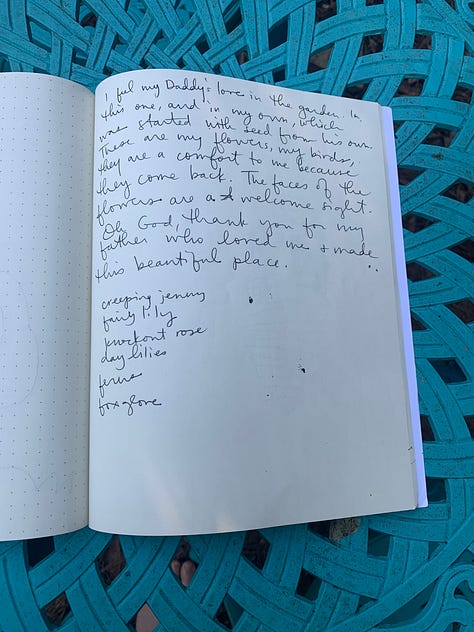 I feel my Daddy's love in the garden. In
this one, and in my own, which
was started with seed from his own.
These are my flowers, my birds,
they are a comfort to me because
they come back. The faces of the
flowers are a welcome sight.
Oh God, thank you for my
father who loved me & made
this beautiful place.
creeping jenny
fairy lily
knockout rose
day lilies
ferns
foxglove